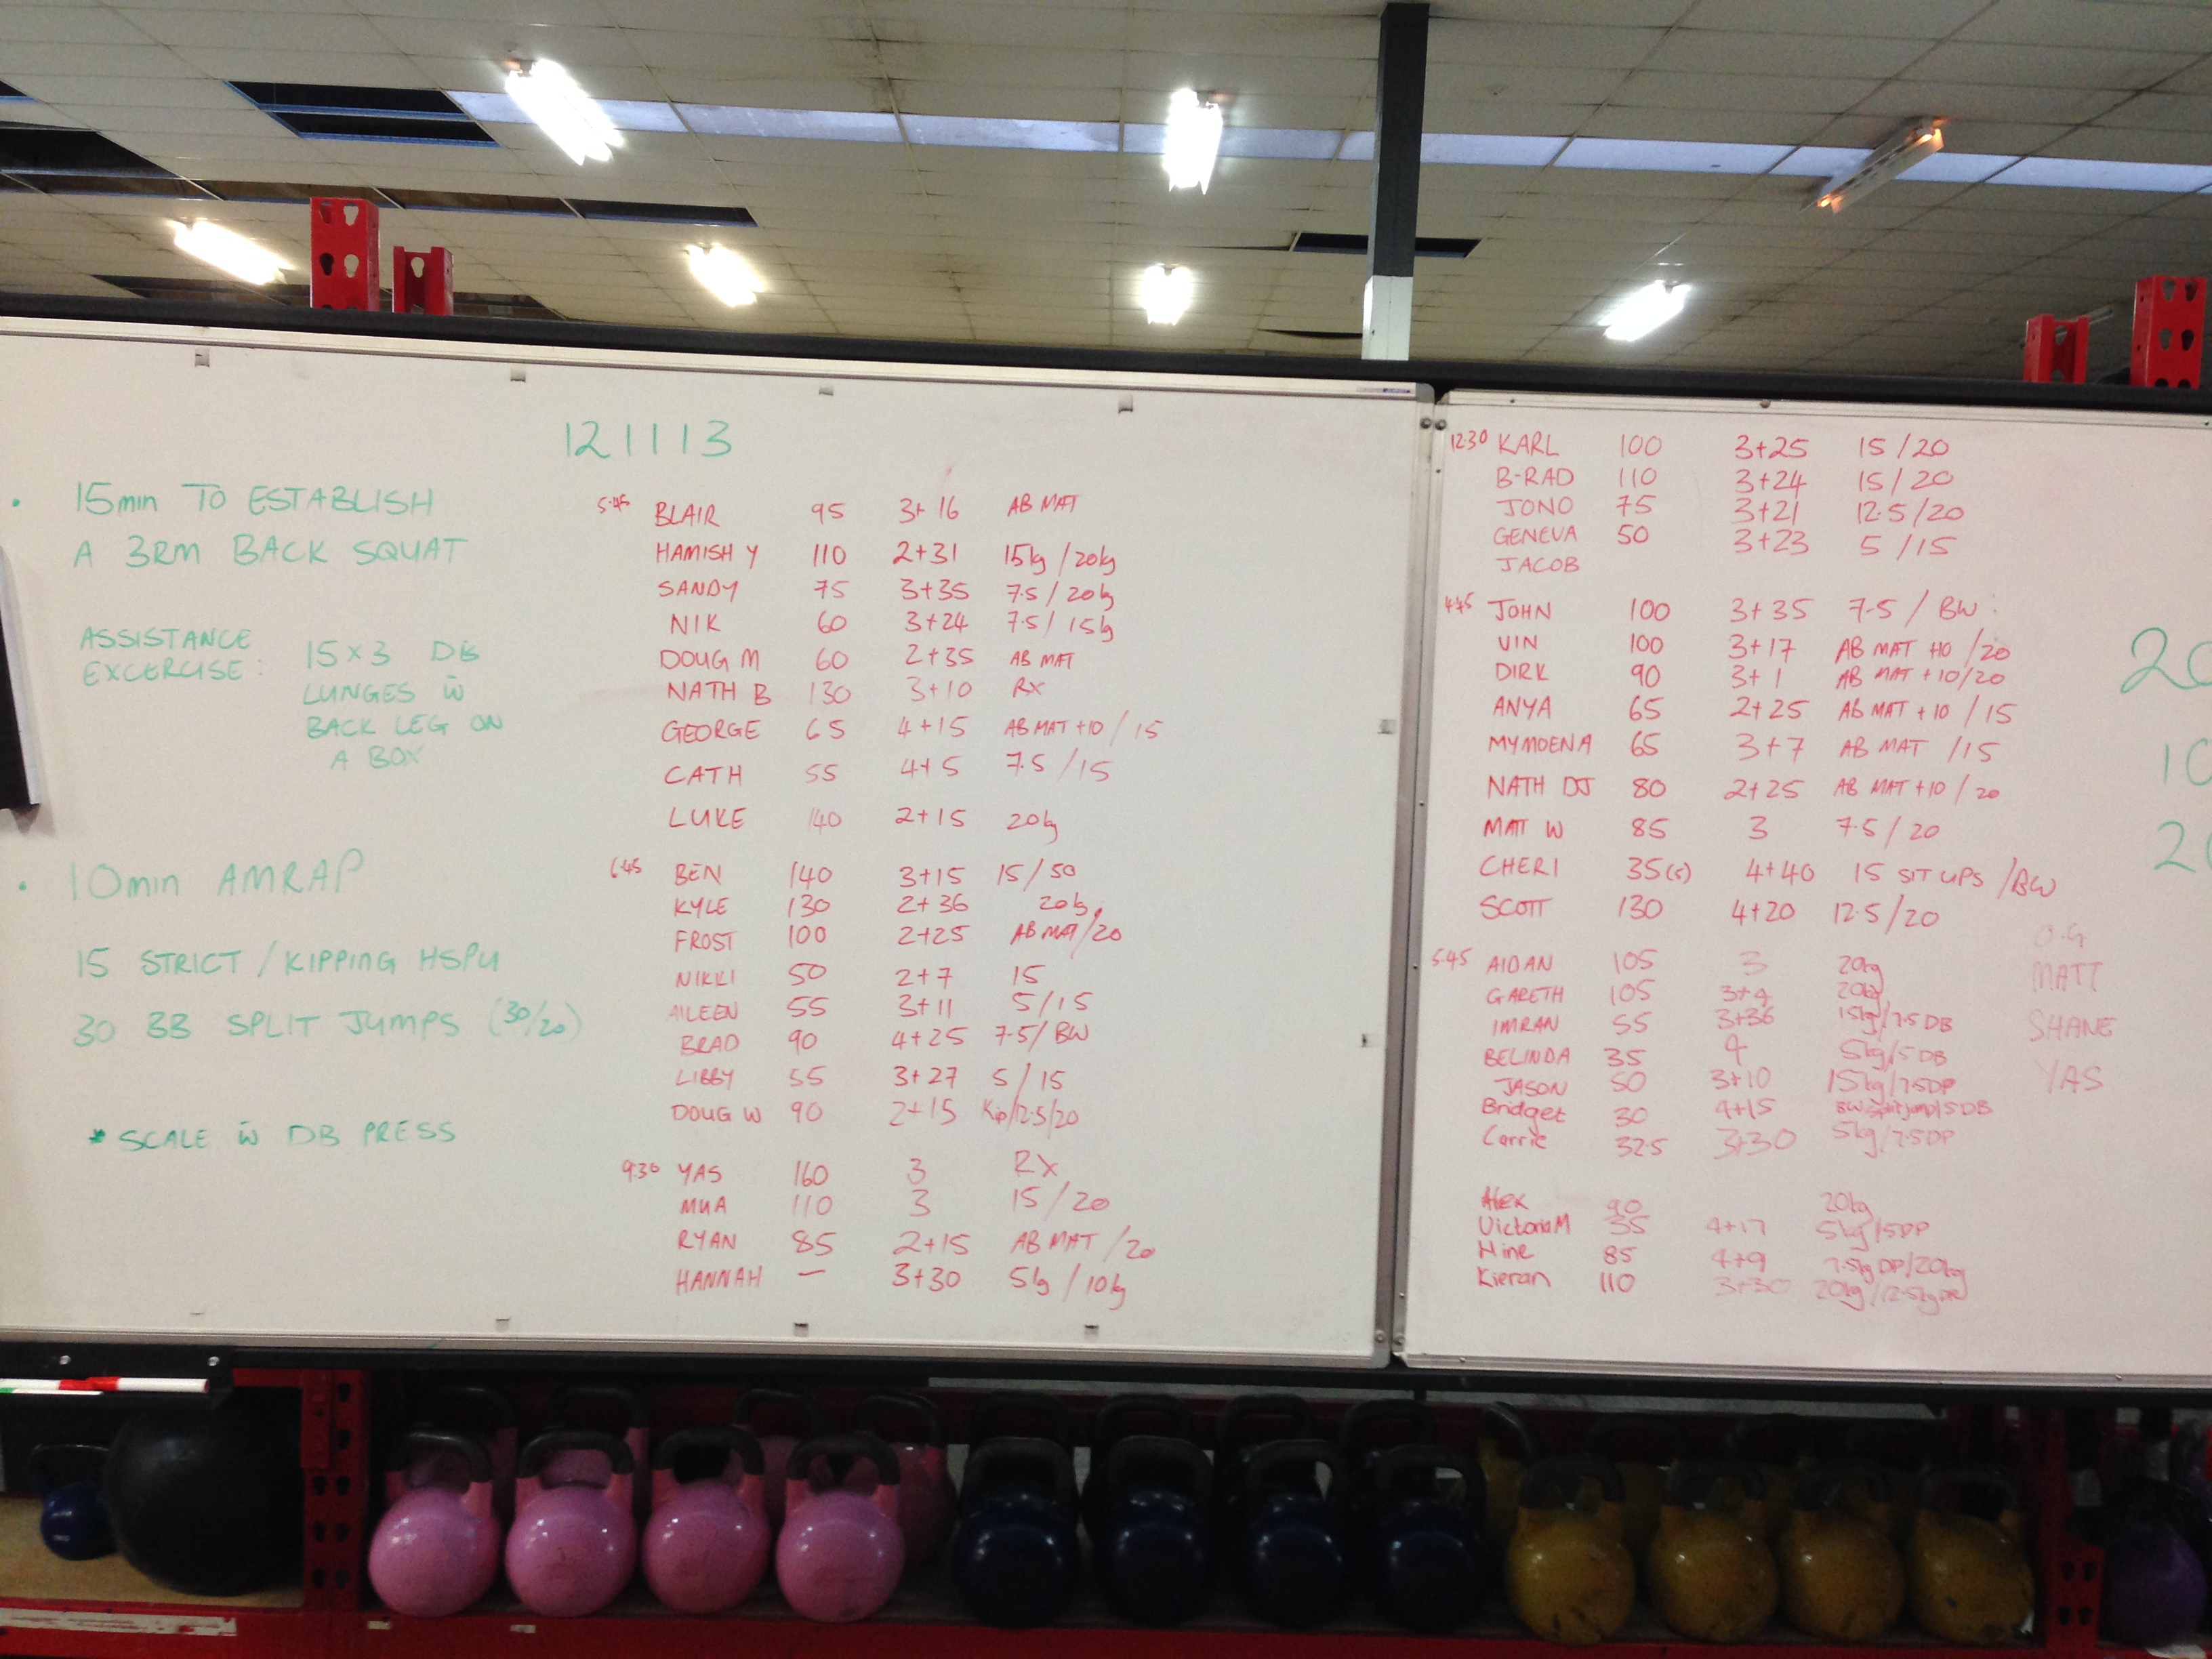 121113
• 15min TO ESTABLISH
A 3RM BACK SQUAT
ASSISTANCE
EXCERCISE: 15x3 DB
LUNGES w̄
BACK LEG ON
A BOX
• 10min AMRAP
15 STRICT / KIPPING HSPU
30 BB SPLIT JUMPS (30/20)
* SCALE w̄ DB PRESS
5:45 BLAIR 95 3+16 AB MAT
HAMISH Y 110 2+31 15kg / 20kg
SANDY 75 3+35 7.5 / 20kg
NIK 60 3+24 7.5 / 15kg
DOUG M 60 2+35 AB MAT
NATH B 130 3+10 RX
GEORGE 65 4+15 AB MAT +10 / 15
CATH 55 4+5 7.5 / 15
LUKE 140 2+15 20kg
6:45 BEN 140 3+15 15/50
KYLE 130 2+36 20kg
FROST 100 2+25 AB MAT/20
NIKKI 50 2+7 15
AILEEN 55 3+11 5/15
BRAD 90 4+25 7.5/BW
LIBBY 55 3+27 5/15
DOUG W 90 2+15 Kip/12.5/20
9:30 YAS 160 3 RX
MUA 110 3 15/20
RYAN 85 2+15 AB MAT/20
HANNAH — 3+30 5kg / 10kg
12:30 KARL 100 3+25 15/20
B-RAD 110 3+24 15/20
JONO 75 3+21 12.5/20
GENEVA 50 3+23 5/15
JACOB
4:45 JOHN 100 3+35 7.5 / BW
VIN 100 3+17 AB MAT +10 /20
DIRK 90 3+1 AB MAT +10/20
ANYA 65 2+25 AB MAT +10 / 15
MYMOENA 65 3+7 AB MAT /15
NATH DJ 80 2+25 AB MAT +10 / 20
MATT W 85 3 7.5/20
CHERI 35(s) 4+40 15 SIT UPS /BW
SCOTT 130 4+20 12.5/20
5:45 AIDAN 105 3 20kg
GARETH 105 3+4 20kg
IMRAN 55 3+36 15kg/7.5 DB
BELINDA 35 4 5kg/5 DB
JASON 50 3+10 15kg/7.5DP
Bridget 30 4+15 BW split jump/5DB
Carrie 32.5 3+30 5kg/7.5DP
Alex 90 20kg
Victoria M 35 4+17 5kg/5DP
Mine 85 4+9 7.5kg DP/20kg
Kieran 110 3+30 20kg/12.5kg DP
O.G
MATT
SHANE
YAS
20
10
20